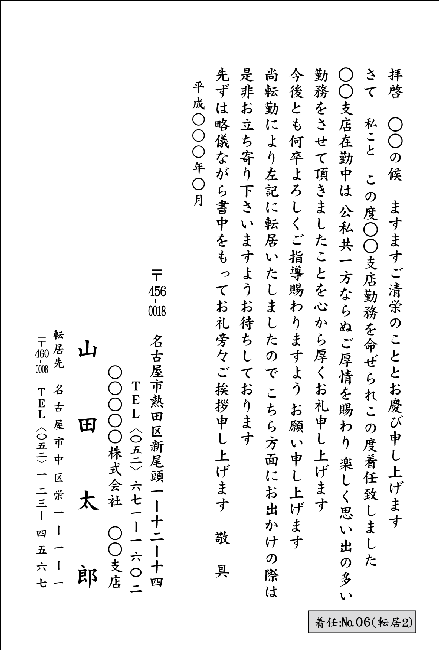 拝啓　〇〇の候　ますますご清栄のこととお慶び申し上げます
さて　私こと　この度〇〇支店勤務を命ぜられこの度着任致しました
〇〇支店在勤中は 公私共一方ならぬご厚情を賜わり 楽しく思い出の多い
勤務をさせて頂きましたことを心から厚くお礼申し上げます
今後とも何卒よろしくご指導賜わりますよう お願い申し上げます
尚転勤により左記に転居いたしましたので こちら方面にお出かけの際は
是非お立ち寄り下さいますようお待ちしております
先ずは略儀ながら書中をもってお礼旁々ご挨拶申し上げます　敬具
平成〇〇〇年〇月
〒456-0018　名古屋市熱田区新尾頭一ー十二ー十四
ＴＥＬ〈〇五二〉六七一ー一六〇二
〇〇〇〇〇株式会社　〇〇支店
山田太郎
転居先　名古屋市中区栄一ー一ー一
〒460-0008　ＴＥＬ〈〇五二〉一二三ー四五六七
着任:No.06(転居2)